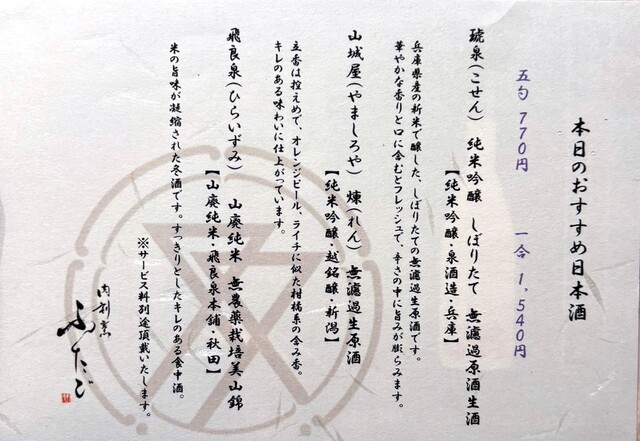 本日のおすすめ日本酒
五勺 770円 一合 1,540円
琥泉(こせん) 純米吟醸 しぼりたて 無濾過原酒生酒
【純米吟醸・泉酒造・兵庫】
兵庫県産の新米で醸した、しぼりたての無濾過生原酒です。
華やかな香りと口に含むとフレッシュで、辛さの中に旨みが膨らみます。
山城屋(やましろや) 煉(れん) 無濾過生原酒
【純米吟醸・越銘醸・新潟】
立香は控えめで、オレンジピール、ライチに似た柑橘系の含み香。
キレのある味わいに仕上がっています。
飛良泉(ひらいずみ) 山廃純米 無農薬栽培美山錦
【山廃純米・飛良泉本舗・秋田】
米の旨味が凝縮された冬酒です。すっきりとしたキレのある食中酒。
※サービス料別途頂戴いたします。
肉割烹
ふたご